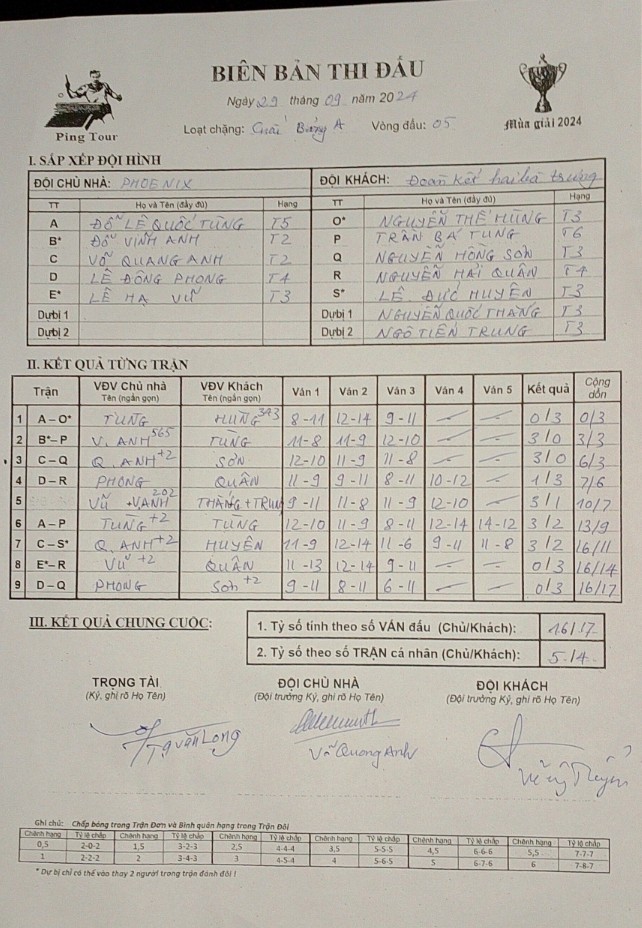 BIÊN BẢN THI ĐẤU
Ngày 29 tháng 09 năm 2024
Ping Tour
Loạt chặng: Bảng A Vòng đấu: 05
Mùa giải 2024
I. SẮP XẾP ĐỘI HÌNH
ĐỘI CHỦ NHÀ: PHOENIX ĐỘI KHÁCH: Đoàn kết hai bà trưng
TT Họ và Tên (đầy đủ) Hạng TT Họ và Tên (đầy đủ) Hạng
A ĐỖ LÊ QUỐC TÙNG T5 O* NGUYỄN THẾ HÙNG T3
B* ĐỖ VINH ANH T2 P TRẦN BÁ TÙNG T6
C VÕ QUANG ANH T2 Q NGUYỄN HỒNG SƠN T3
D LÊ ĐÔNG PHONG T4 R NGUYỄN HẢI QUÂN T4
E* LÊ HẠ VŨ T3 S* LÊ ĐỨC HUYÊN T3
Dựbị 1 Dựbị 1 NGUYỄN QUỐC THẮNG T3
Dựbị 2 Dựbị 2 NGÔ TIẾN TRUNG T3
II. KẾT QUẢ TỪNG TRẬN
Trận VĐV Chủ nhà Tên (ngắn gọn) VĐV Khách Tên (ngắn gọn) Ván 1 Ván 2 Ván 3 Ván 4 Ván 5 Kết quả Cộng dồn
1 A – O* TÙNG HÙNG 343 8-11 12-14 9-11 – – 0/3 0/3
2 B* – P V. ANH 565 TÙNG 11-8 11-9 12-10 – – 3/0 3/3
3 C – Q Q. ANH +2 SƠN 12-10 11-9 11-8 – – 3/0 6/3
4 D – R PHONG QUÂN 11-9 9-11 8-11 10-12 – 1/3 7/6
5 VŨ + VANH 202 THẮNG + TRUNG 9-11 11-8 11-9 12-10 – 3/1 10/7
6 A – P TÙNG +2 TÙNG 12-10 11-9 8-11 12-14 14-12 3/2 13/9
7 C – S* Q. ANH +2 HUYÊN 11-9 12-14 11-6 9-11 11-8 3/2 16/11
8 E* – R VŨ +2 QUÂN 11-13 12-14 9-11 – – 0/3 16/14
9 D – Q PHONG Sơn +2 9-11 8-11 6-11 0/3 16/17
III. KẾT QUẢ CHUNG CUỘC:
1. Tỷ số tính theo số VÁN đấu (Chủ/Khách): 16/17
2. Tỷ số theo số TRẬN cá nhân (Chủ/Khách): 5/4
TRỌNG TÀI ĐỘI CHỦ NHÀ ĐỘI KHÁCH
(Ký, ghi rõ Họ Tên) (Đội trưởng Ký, ghi rõ Họ Tên) (Đội trưởng Ký, ghi rõ Họ Tên)
Võ Quang Anh
Ghi chú: Chấp bóng trong Trận Đơn và Bình quân hạng trong Trận Đôi
Chênh hạng Tỷ lệ chấp Chênh hạng Tỷ lệ chấp Chênh hạng Tỷ lệ chấp Chênh hạng Tỷ lệ chấp Chênh hạng Tỷ lệ chấp Chênh hạng Tỷ lệ chấp
0,5 2-0-2 1,5 3-2-3 2,5 4-4-4 3,5 5-5-5 4,5 6-6-6 5,5 7-7-7
1 2-2-2 2 3-4-3 3 4-5-4 4 5-6-5 5 6-7-6 6 7-8-7
* Dự bị chỉ có thể vào thay 2 người trong trận đánh đôi !